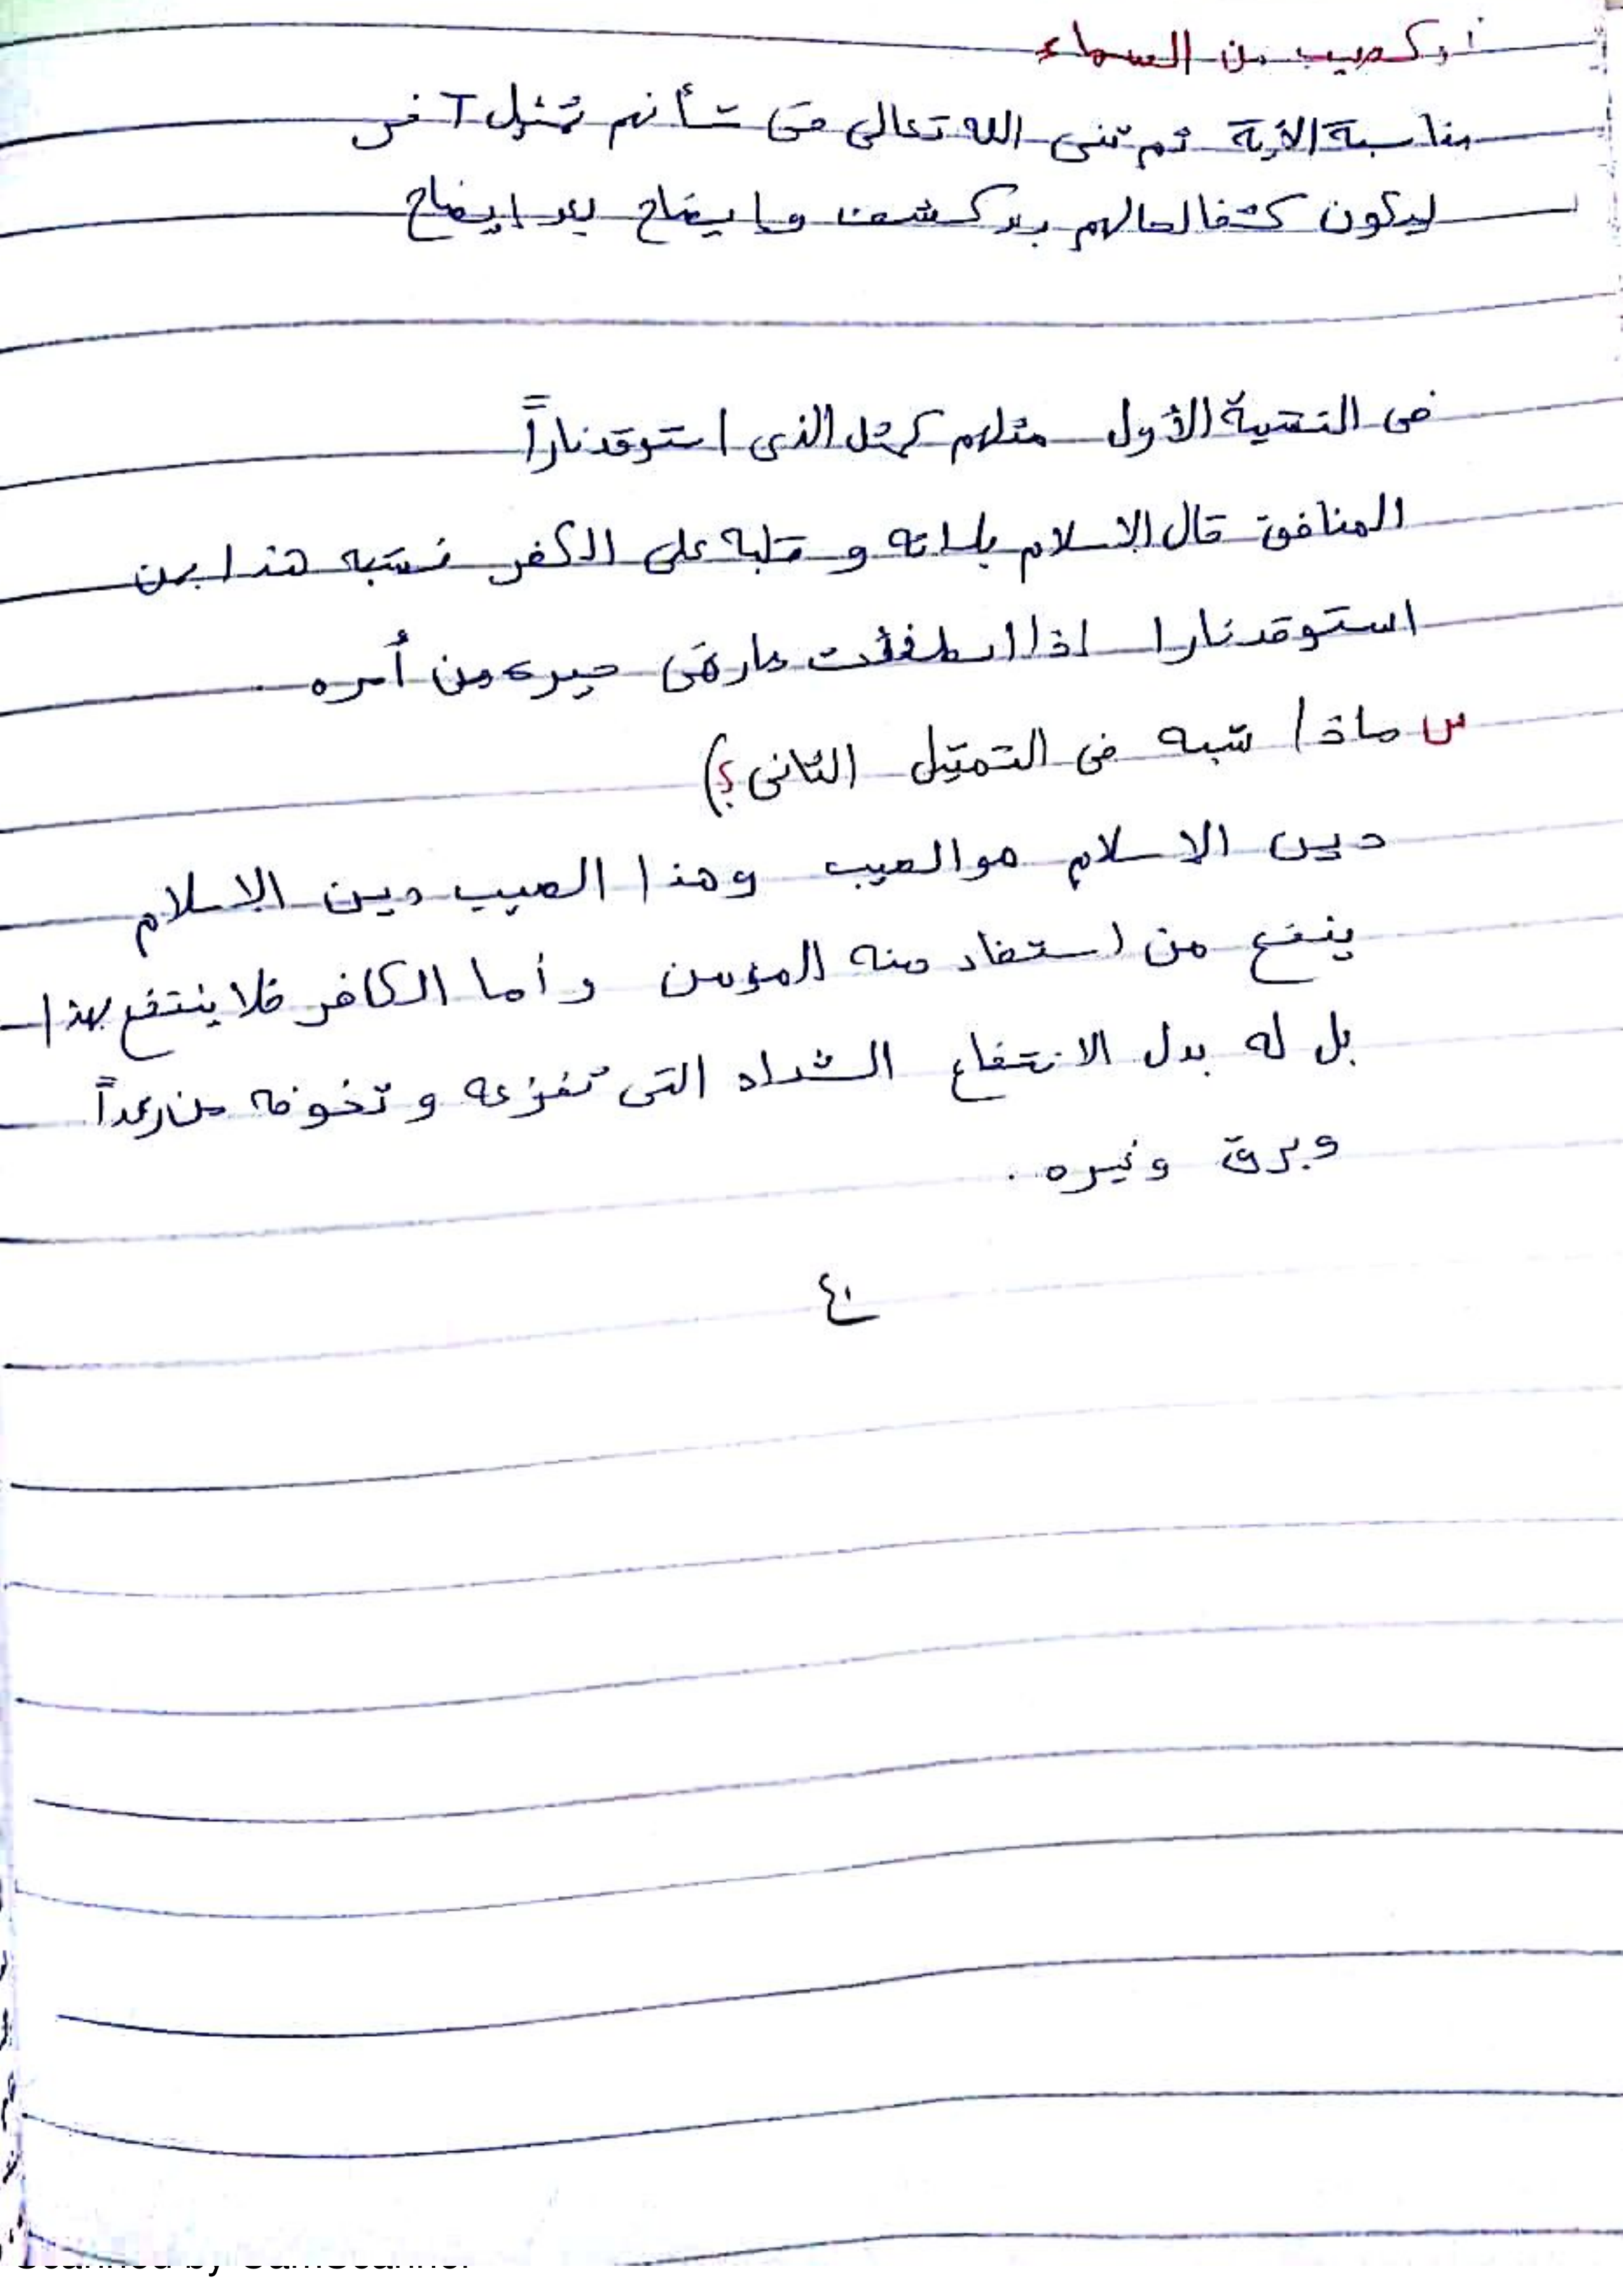 أو كصيب من السماء
مناسبة الآية ثم ثنى الله تعالى فى شأنهم تمثيل آخر
ليكون كشفا لحالهم بعد كشف وإيضاح بعد إيضاح
فى التشبية الأول مثلهم كمثل الذى استوقد ناراً
المنافق قال الاسلام بلسانه و قلبه على الكفر نشبه هذا بمن
استوقد نارا اذا انطفئت صار فى حيرة من أمره
س ماذا شبه فى التمثيل الثانى؟)
دين الاسلام هو الصيب وهذا الصيب دين الاسلام
ينفع من استفاد منه المؤمن وأما الكافر فلا ينتفع بهذا
بل له بدل الانتفاع الشداد التى تفزعه و تخوفه من رعداً
وبرق وغيره .
Scanned by CamScanner